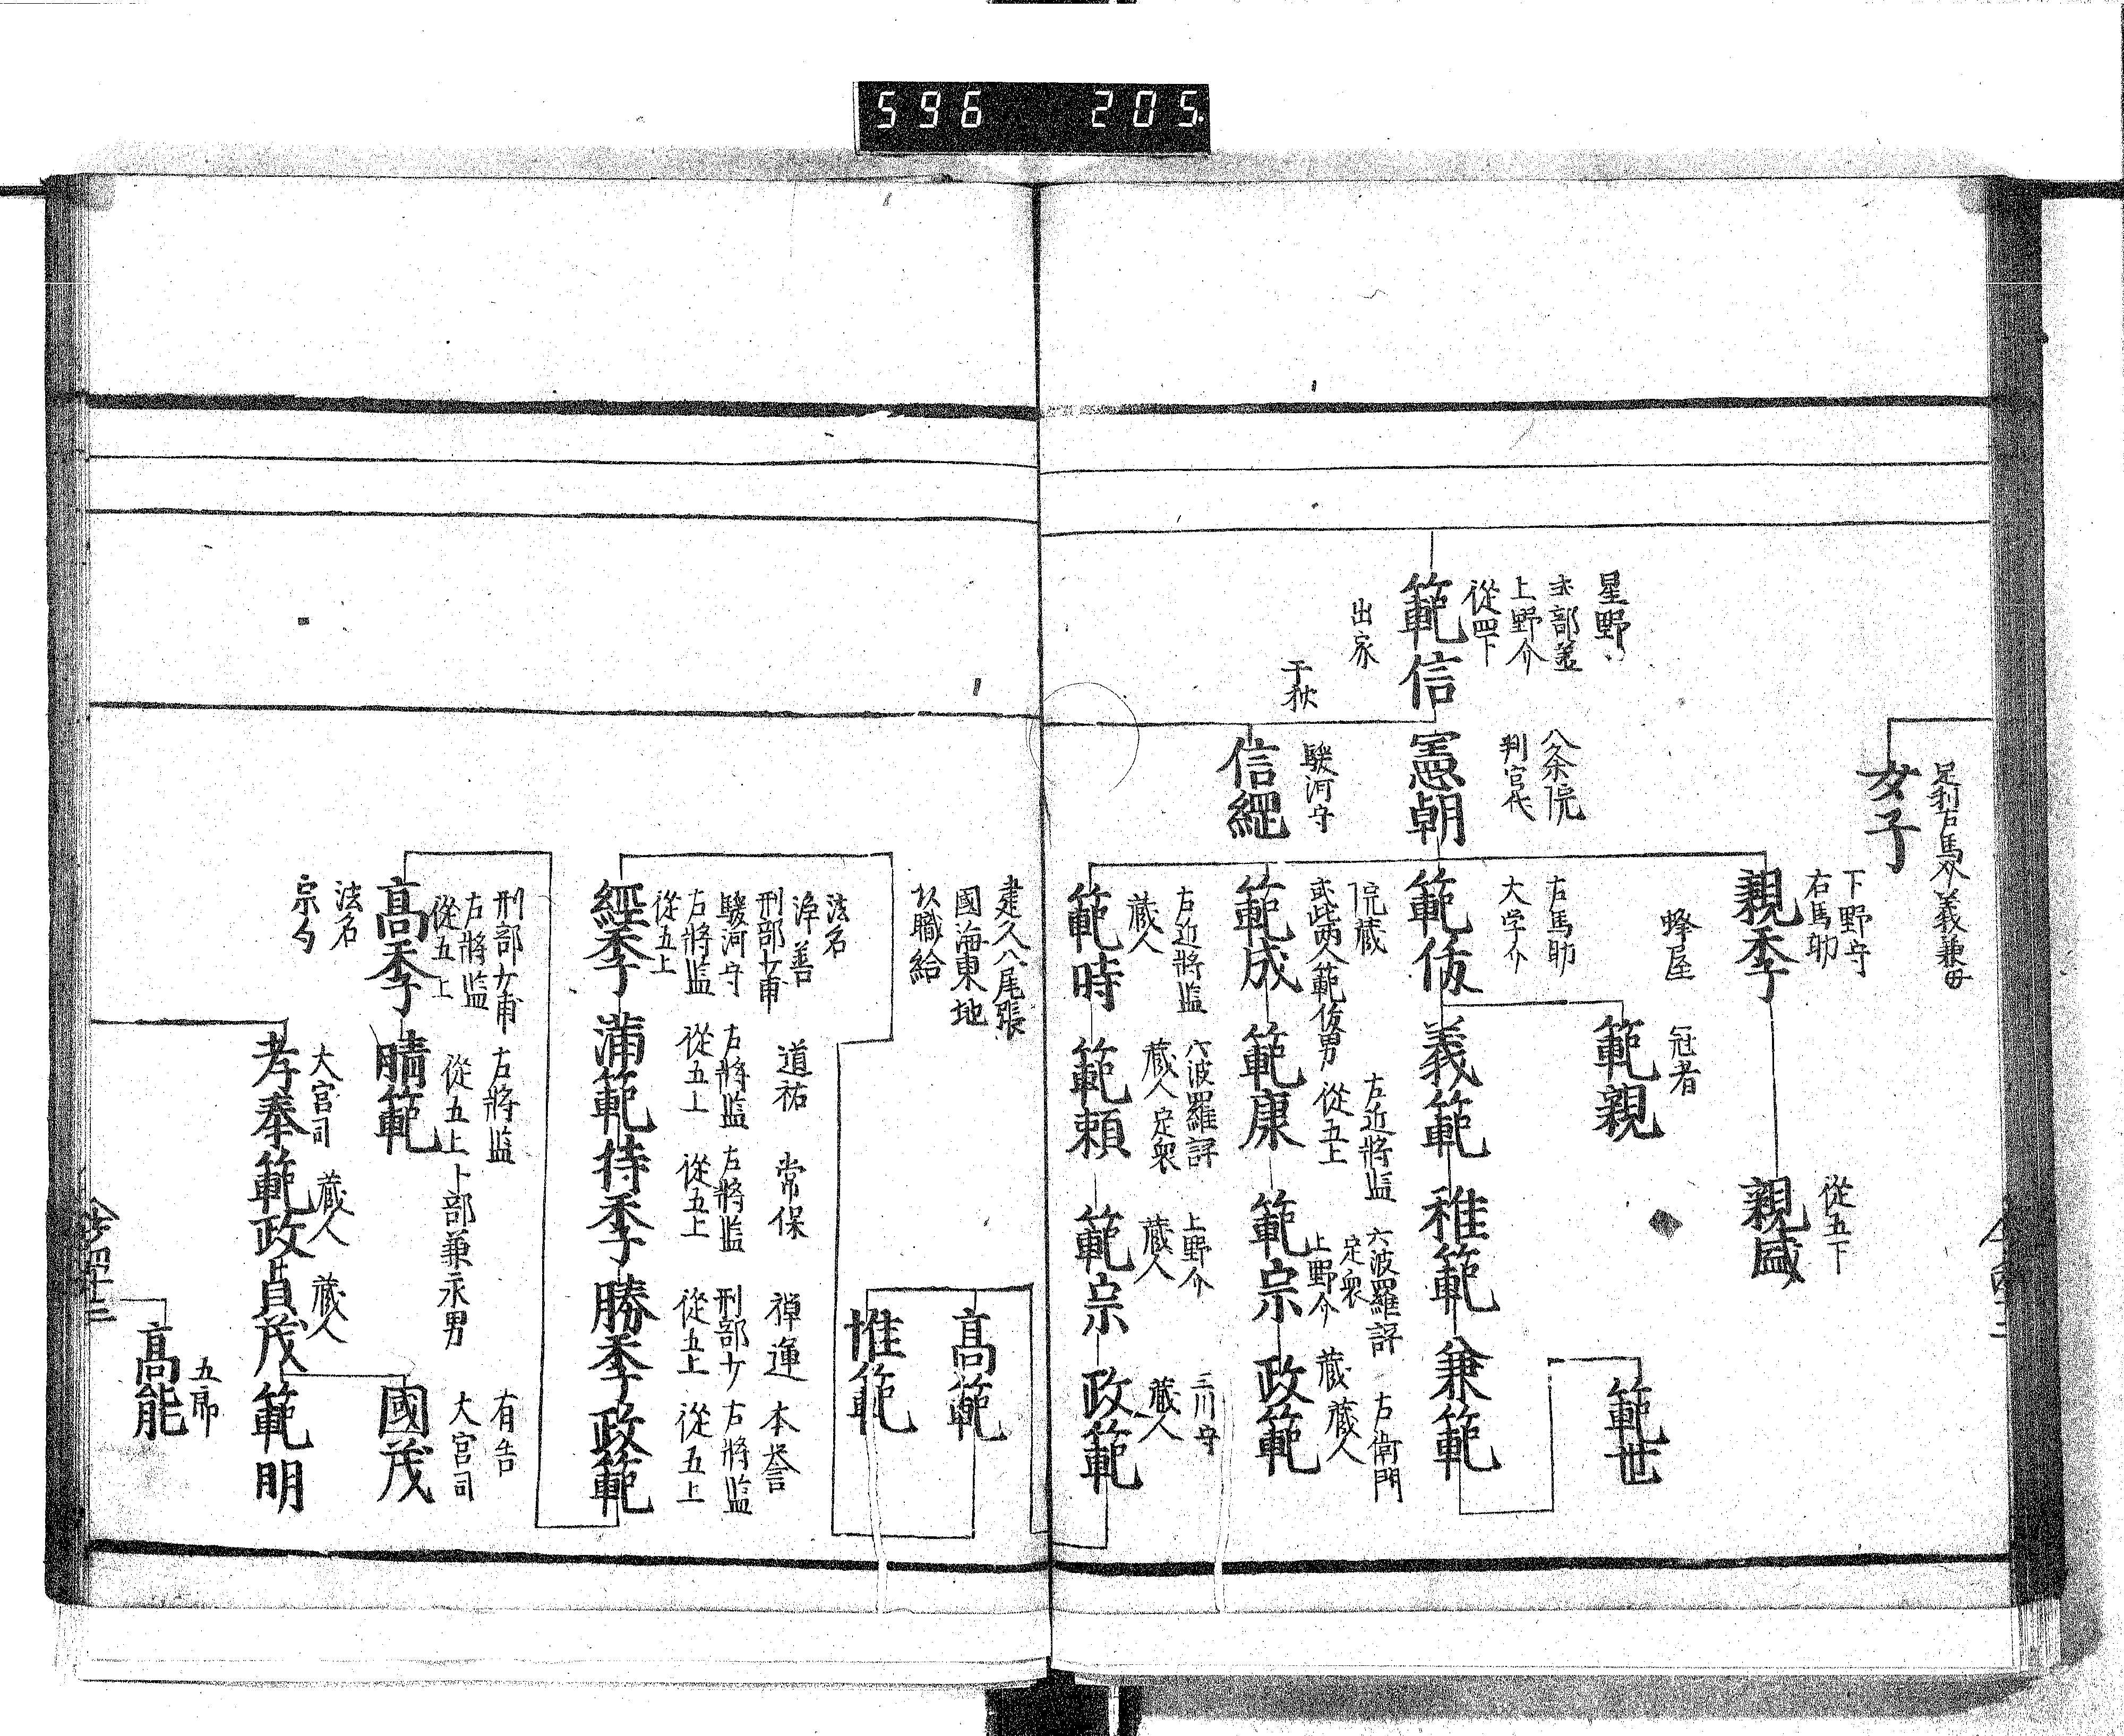 596 205.
足利右馬介義兼母
女子
下野守
右馬助
親季
從五下
親盛
蜂屋
冠者
範親
範世
星野
上野介
從四下
範信
出家
八条院
判官代
憲朝
右馬助
大学介
範俊
義範
稚範
兼範
于狄
駿河守
信綱
院蔵
或此両人範俊男
範成
左近将監
從五上
範康
六波羅評
定衆
上野介
範宗
蔵
右衛門
蔵人
政範
左近将監
蔵人
範時
六波羅評
定衆
蔵人
範頼
上野介
蔵人
範宗
三川守
蔵人
政範
建久八尾張
國海東地
以職給
高範
惟範
法名
浄善
刑部少甫
駿河守
左將監
從五上
經季
道祐
右將監
從五上
蒲範
常保
左將監
從五上
持季
禅運
刑部少
從五上
勝季
本誉
右將監
從五上
政範
刑部少甫
右將監
從五上
高季
法名
宗勺
右將監
從五上
晴範
卜部兼永男
有告
大宮司
國茂
大宮司
孝奉
蔵人
範政
蔵人
貞茂
範明
五郎
高能